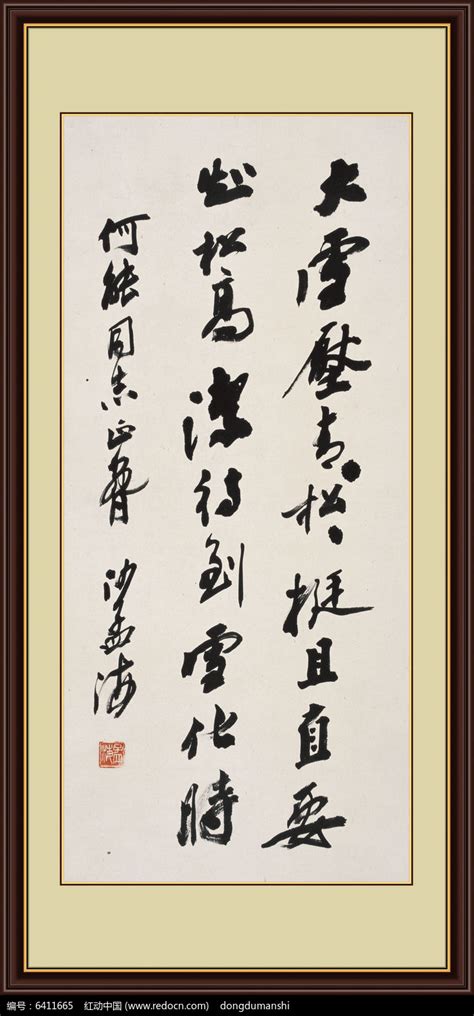 大雪壓青〻松〻挺且直要
知松高潔待到雪化時
何能同志正
沙孟海
编号：6411665 红动中国 (www.redocn.com) dongdumanshi